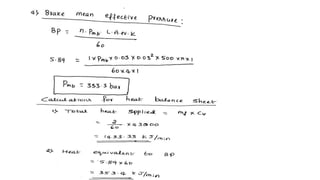 a) Brake mean effective pressure :
BP = n. Pmb L.A.N.K
60
5.89 = 1 x Pmb x 0.03 x 0.03² x 500 x π x 1
60 x 4 x 1
Pmb = 333.3 bar
Calculations for heat balance sheet
1) Total heat supplied = mf x Cv
= 2/60 x 43000
= 1433.33 KJ/min
2) Heat equivalent to BP
= 5.89 x 60
= 353.4 KJ/min